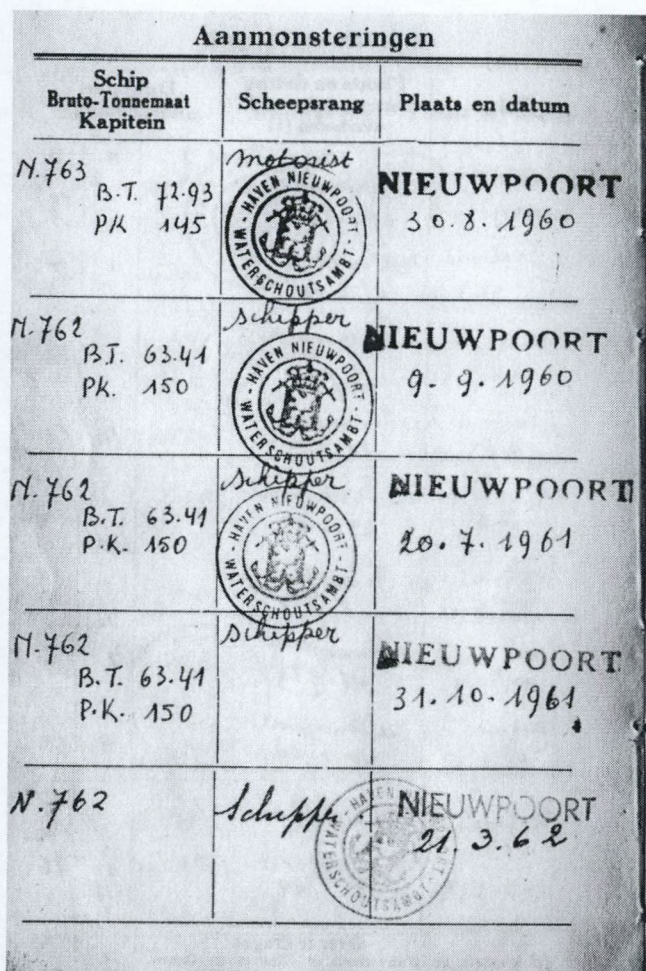 Aanmonsteringen
Schip
Bruto-Tonnemaat
Kapitein
Scheepsrang
Plaats en datum
N.763
B.T. 72.93
PK 145
motorist
- HAVEN NIEUWPOORT - WATERSCHOUTSAMBT
NIEUWPOORT
30.8.1960
N.762
B.T. 63.41
PK. 150
schipper
- HAVEN NIEUWPOORT - WATERSCHOUTSAMBT
NIEUWPOORT
9.9.1960
N.762
B.T. 63.41
P.K. 150
schipper
- HAVEN NIEUWPOORT - WATERSCHOUTSAMBT
NIEUWPOORT
20.7.1961
N.762
B.T. 63.41
P.K. 150
schipper
NIEUWPOORT
31.10.1961
N.762
Schipper
HAVEN
WATERSCHOUTSAMBT
NIEUWPOORT
21.3.62